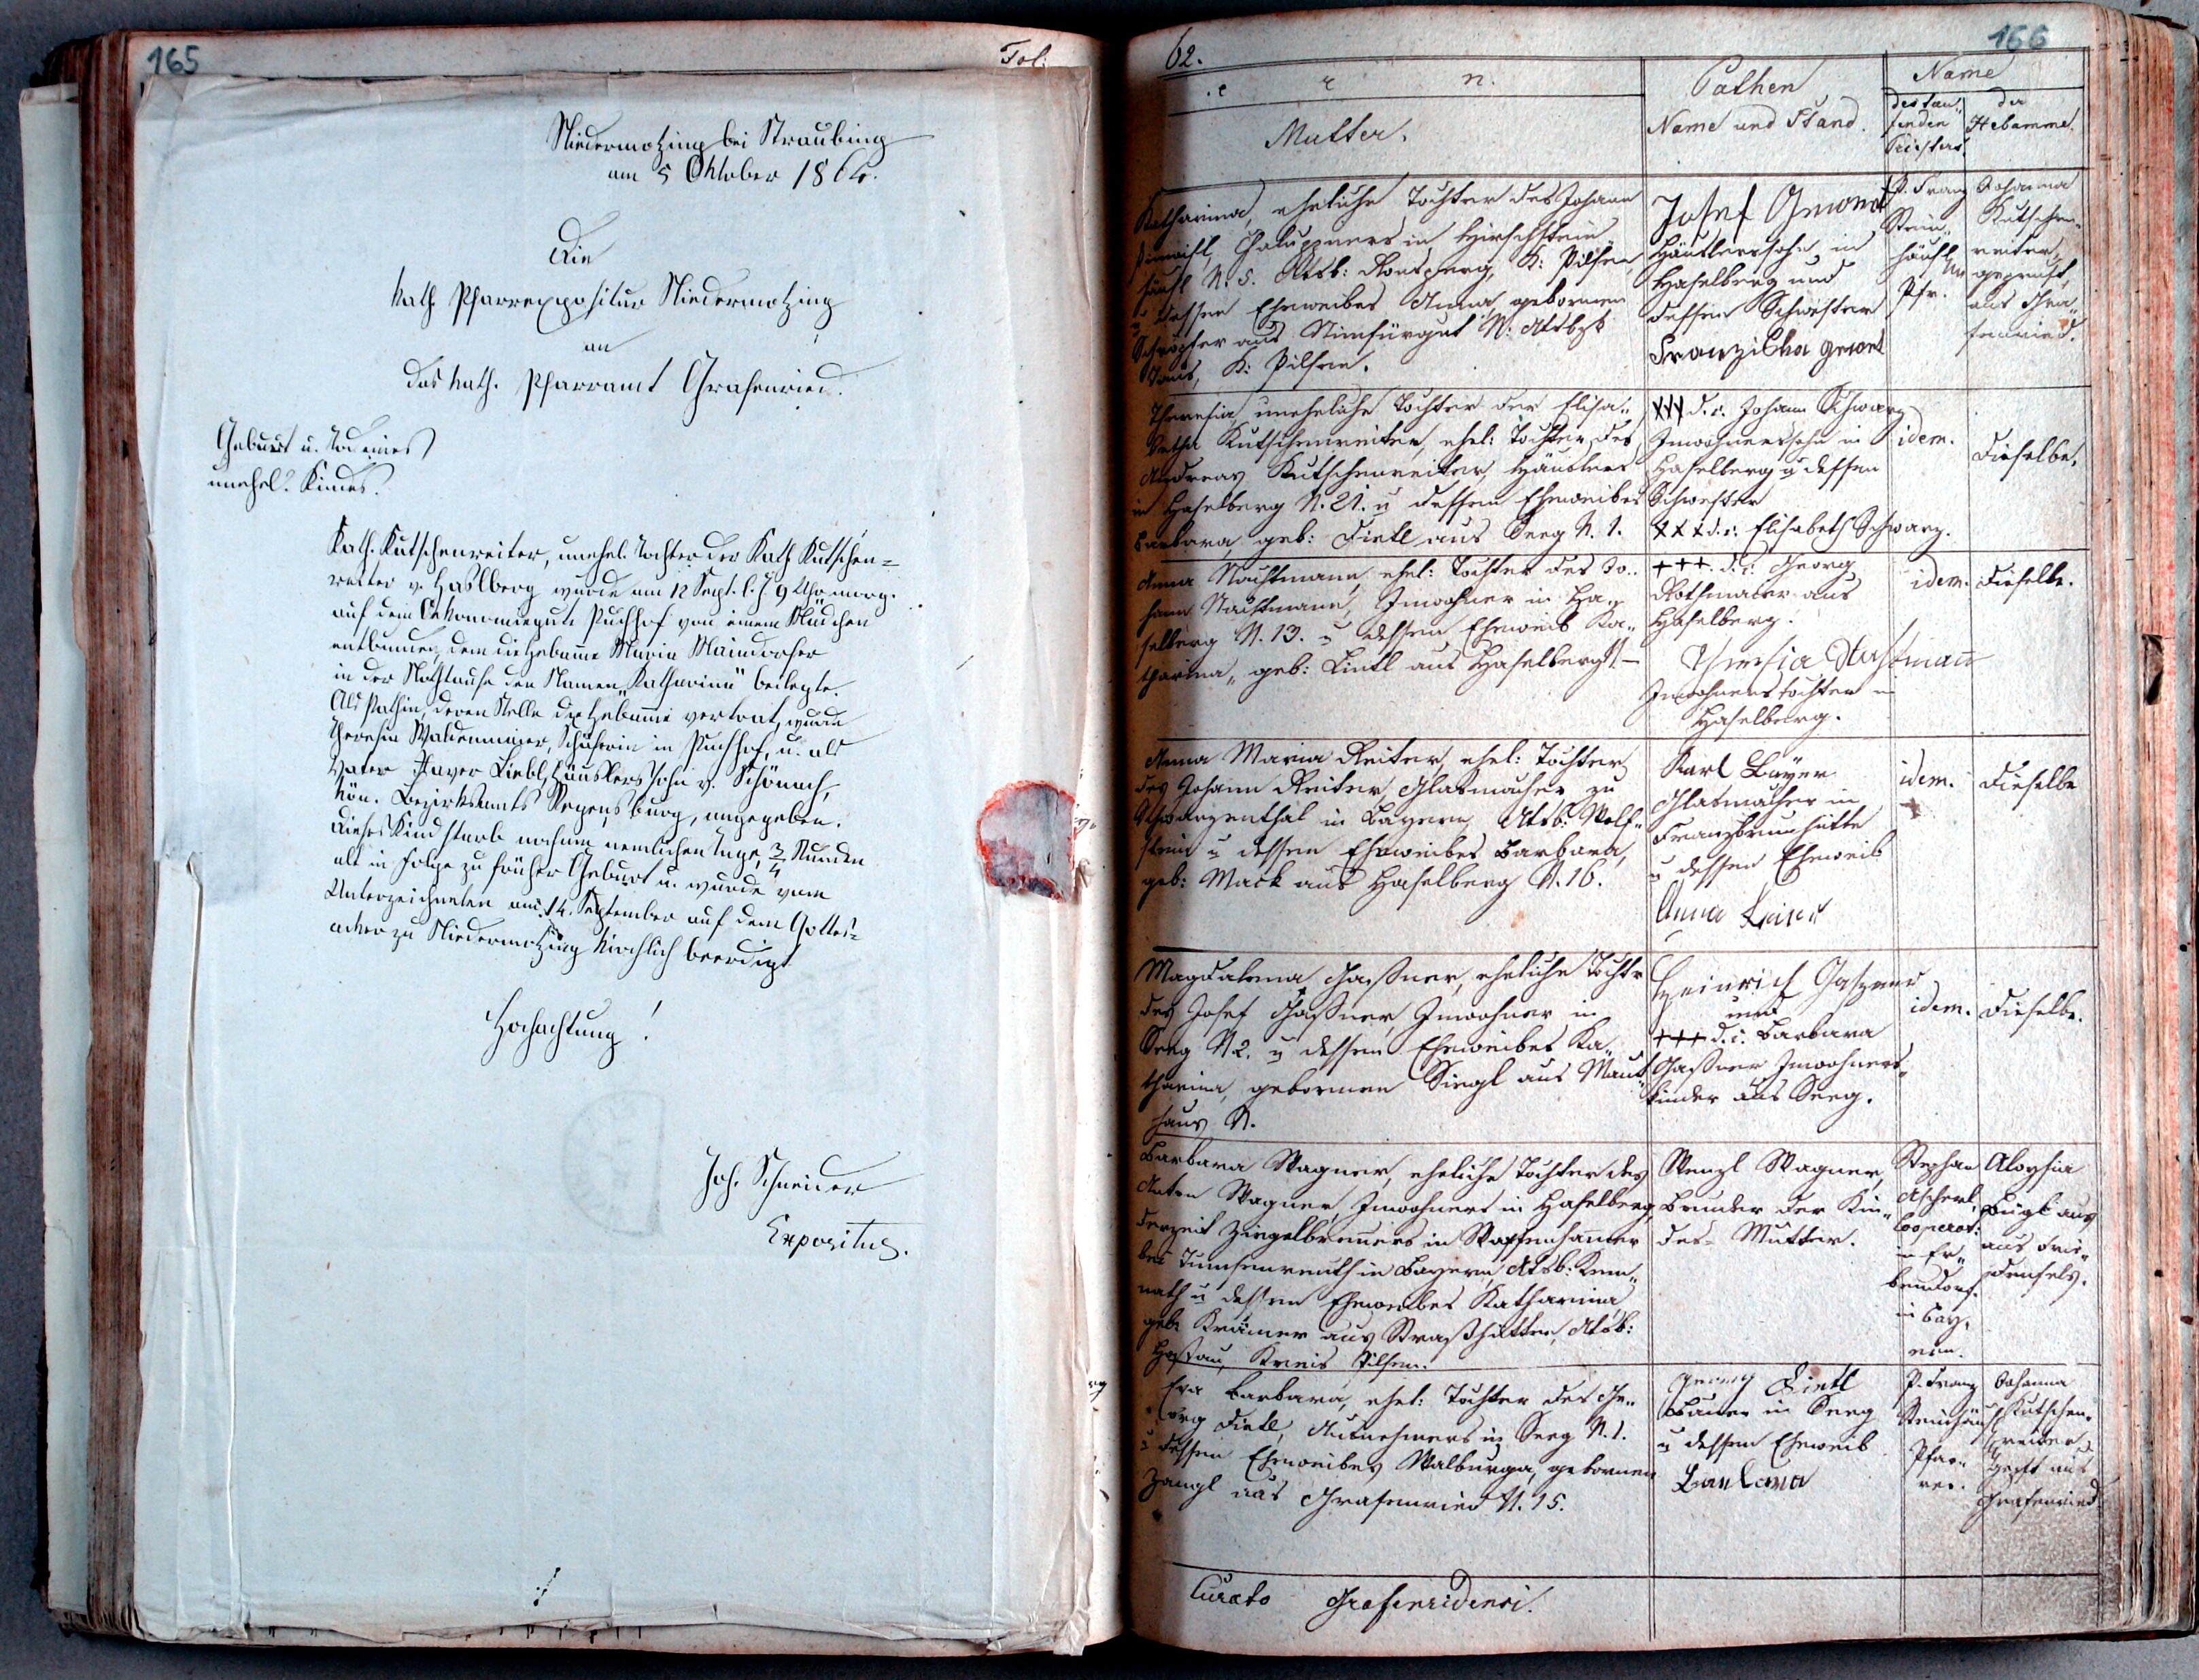 165
Fol.
Niedermotzing bei Straubing
am 5 Oktober 186
Die
kath. Pfarrexpositur Niedermotzing
an
das kath. Pfarramt Grafenried.
Geburt u. Tod eines
unehel. Kindes.
Kath. Kutschenreiter, unehel. Tochter der Kath Kutschen=
reiter v. Haslberg wurde am 12 Sept. l. J. 9 Uhr morg.
auf dem Oekonomiegute Puchhof von einem Mädchen
entbunden, dem die Hebamme Maria Maindorfer
in der Nothtaufe den Namen „Katharina" beilegte.
Als Pathin, deren Stelle die Hebamme vertrat, wurde
Theresia Waldenmaier, Schäferin in Puchhof, u. als
Vater Xaver Liebl, Häuslers Sohn v. Schönach,
kön. Bezirksamts Regensburg, angegeben.
Dieses Kind starb noch am nemlichen Tage, 3/4 Stunden
alt in Folge zu früher Geburt u. wurde vom
Unterzeichneten am 14. September auf dem Gottes=
acker zu Niedermotzing kirchlich beerdigt
Hochachtung!
Joh. Schneider
Expositus.
62.
166
e r n.
Mutter.
Pathen
Name und Stand.
Name
des tau-
fenden
Priesters.
der
Hebamme.
Katharina, eheliche Tochter des Johann
Chaluppners in Hirschstein
häusl N. 5. Atsb: Ronsperg, K: Pilsen,
u dessen Eheweibes Anna, gebornen
Schröpfer aus N: Atsbzk
Taus, K: Pilsen.
Josef Gmond
Häuslerssohn in
Haselberg und
dessen Schwester
Franziska
P. Franz
Stein-
häusl
Pfr.
Johanna
Kutschen-
reiter,
geprüft,
aus Gra-
fenried.
Theresia, uneheliche Tochter der Elisa-
betha Kutschenreiter, ehel: Tochter des
Andreas Kutschenreiter, Häuslers
in Haselberg N. 21. u dessen Eheweibes
Barbara, geb: Dietl aus Seeg N. 1.
XXX d. i. Johann Schwarz
Inwohnerssohn in
Haselberg u dessen
Schwester
XXX d. i. Elisabeth Schwarz.
idem.
dieselbe.
Anna Nachtmann, ehel: Tochter des Jo-
hann Nachtmann, Inwohner in Ha-
selberg N. 13. u dessen Eheweib Ka-
tharina, geb: Lintl aus Haselberg N. —
+++. d. i. Georg
Rothmaier aus
Haselberg.
Theresia Nachtmann
Inwohnerstochter in
Haselberg.
idem.
dieselbe.
Anna Maria Reiter, ehel: Tochter
des Johann Reiter, Glasmacher zu
Schwarzenthal in Bayern, Atsb: Wolf-
stein u dessen Eheweibes Barbara,
geb: Mack aus Haselberg N. 16.
Karl Bayer
Glasmacher in
Franzbrunhütte
u dessen Eheweib
Anna
idem.
+
dieselbe
Magdalena Gaßner, eheliche Tochter
des Josef Gaßner, Inwohner in
Seeg N 2. u dessen Eheweibes Ka-
tharina, gebornen Siegl aus Maut-
haus N.
Heinrich Gaßner
und
+++ d. i. Barbara
Gaßner Inwohners-
kinder aus Seeg.
idem.
dieselbe.
Barbara Wagner, eheliche Tochter des
Anton Wagner, Inwohners in Haselberg,
derzeit Ziegelbrenners in
bei Tumsenreuth in Bayern, Atsb: Kem-
nath u dessen Eheweibes Katharina
geb: Krämer aus Straßhütten, Atsb:
Hostau, Kreis Pilsen.
Wenzl Wagner,
Bruder der Kin-
des-Mutter.
Stephan
Ascherl,
Cooperat:
in Er-
bendorf
in Bay-
ern.
Aloysia
aus
aus Frie-
denfels.
Eva Barbara, ehel: Tochter des Ge-
org Dietl, Ausnehmers in Seeg N. 1.
u dessen Eheweibes Walburga, gebornen
Zangl aus Grafenried N. 15.
Georg Dietl
Bauer in Seeg
u dessen Eheweib
Barbara
P. Franz
Steinhäusl
Pfar-
rer.
Johanna
Kutschen-
reiter
gepft aus
Grafenried
Curato Grafenridensi.